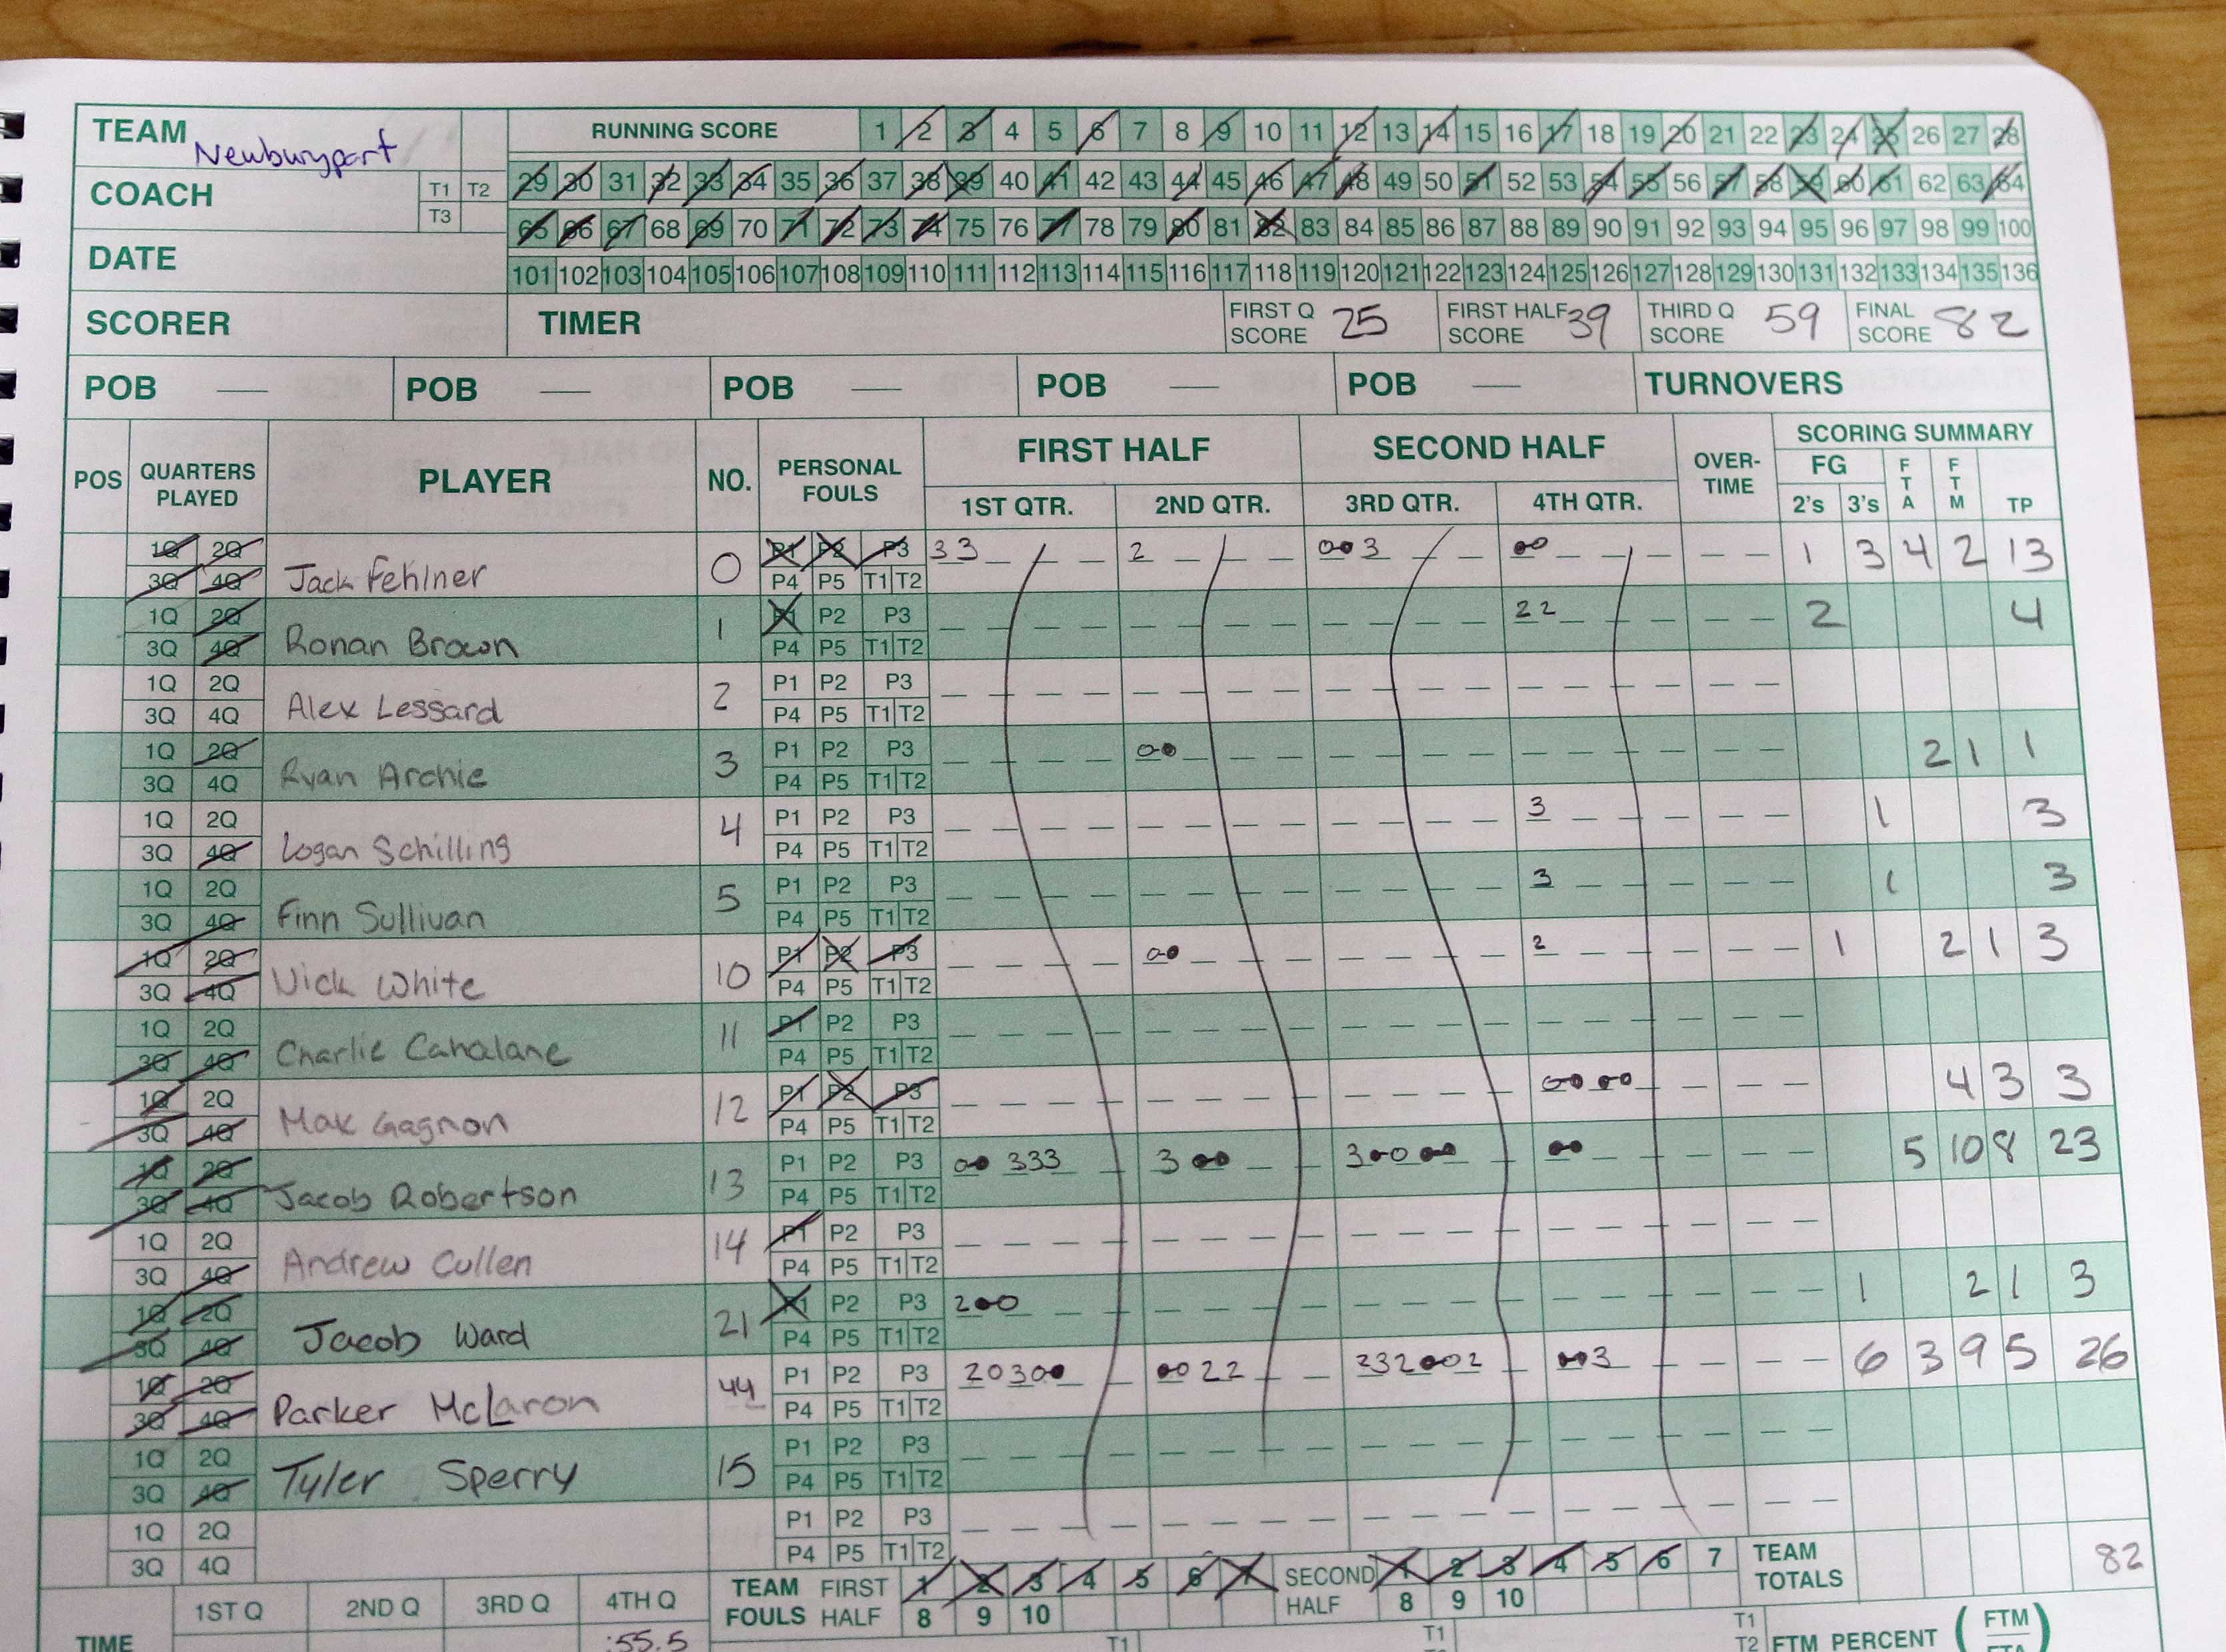 TEAM Newburyport RUNNING SCORE 1 2 3 4 5 6 7 8 9 10 11 12 13 14 15 16 17 18 19 20 21 22 23 24 25 26 27 28
COACH T1 T2 T3 29 30 31 32 33 34 35 36 37 38 39 40 41 42 43 44 45 46 47 48 49 50 51 52 53 54 55 56 57 58 59 60 61 62 63 64
65 66 67 68 69 70 71 72 73 74 75 76 77 78 79 80 81 82 83 84 85 86 87 88 89 90 91 92 93 94 95 96 97 98 99 100
DATE 101 102 103 104 105 106 107 108 109 110 111 112 113 114 115 116 117 118 119 120 121 122 123 124 125 126 127 128 129 130 131 132 133 134 135 136
SCORER TIMER FIRST Q SCORE 25 FIRST HALF SCORE 39 THIRD Q SCORE 59 FINAL SCORE 82
POB — POB — POB — POB — POB — TURNOVERS
POS QUARTERS PLAYED PLAYER NO. PERSONAL FOULS FIRST HALF SECOND HALF OVER-TIME SCORING SUMMARY
1ST QTR. 2ND QTR. 3RD QTR. 4TH QTR. FG 2's 3's FTA FTM TP
1Q 2Q 3Q 4Q Jack Fehlner 0 P1 P2 P3 P4 P5 T1 T2 33 2 003 00 1 3 4 2 13
1Q 2Q 3Q 4Q Ronan Brown 1 P1 P2 P3 P4 P5 T1 T2 22 2 4
1Q 2Q 3Q 4Q Alex Lessard 2 P1 P2 P3 P4 P5 T1 T2
1Q 2Q 3Q 4Q Ryan Archie 3 P1 P2 P3 P4 P5 T1 T2 00 2 1 1
1Q 2Q 3Q 4Q Logan Schilling 4 P1 P2 P3 P4 P5 T1 T2 3 1 3
1Q 2Q 3Q 4Q Finn Sullivan 5 P1 P2 P3 P4 P5 T1 T2 3 1 3
1Q 2Q 3Q 4Q Nick White 10 P1 P2 P3 P4 P5 T1 T2 00 2 1 2 1 3
1Q 2Q 3Q 4Q Charlie Cahalane 11 P1 P2 P3 P4 P5 T1 T2
1Q 2Q 3Q 4Q Max Gagnon 12 P1 P2 P3 P4 P5 T1 T2 00 00 4 3 3
1Q 2Q 3Q 4Q Jacob Robertson 13 P1 P2 P3 P4 P5 T1 T2 00 333 3 00 30000 00 5 10 8 23
1Q 2Q 3Q 4Q Andrew Cullen 14 P1 P2 P3 P4 P5 T1 T2
1Q 2Q 3Q 4Q Jacob Ward 21 P1 P2 P3 P4 P5 T1 T2 200 1 2 1 3
1Q 2Q 3Q 4Q Parker McLaron 44 P1 P2 P3 P4 P5 T1 T2 20300 00 22 232002 003 6 3 9 5 26
1Q 2Q 3Q 4Q Tyler Sperry 15 P1 P2 P3 P4 P5 T1 T2
1Q 2Q 3Q 4Q P1 P2 P3 P4 P5 T1 T2
TEAM FOULS FIRST HALF 1 2 3 4 5 6 7 8 9 10 SECOND HALF 1 2 3 4 5 6 7 8 9 10 TEAM TOTALS 82
1ST Q 2ND Q 3RD Q 4TH Q
TIME :55.5 T1 T1 T1 T2 FTM PERCENT (FTM